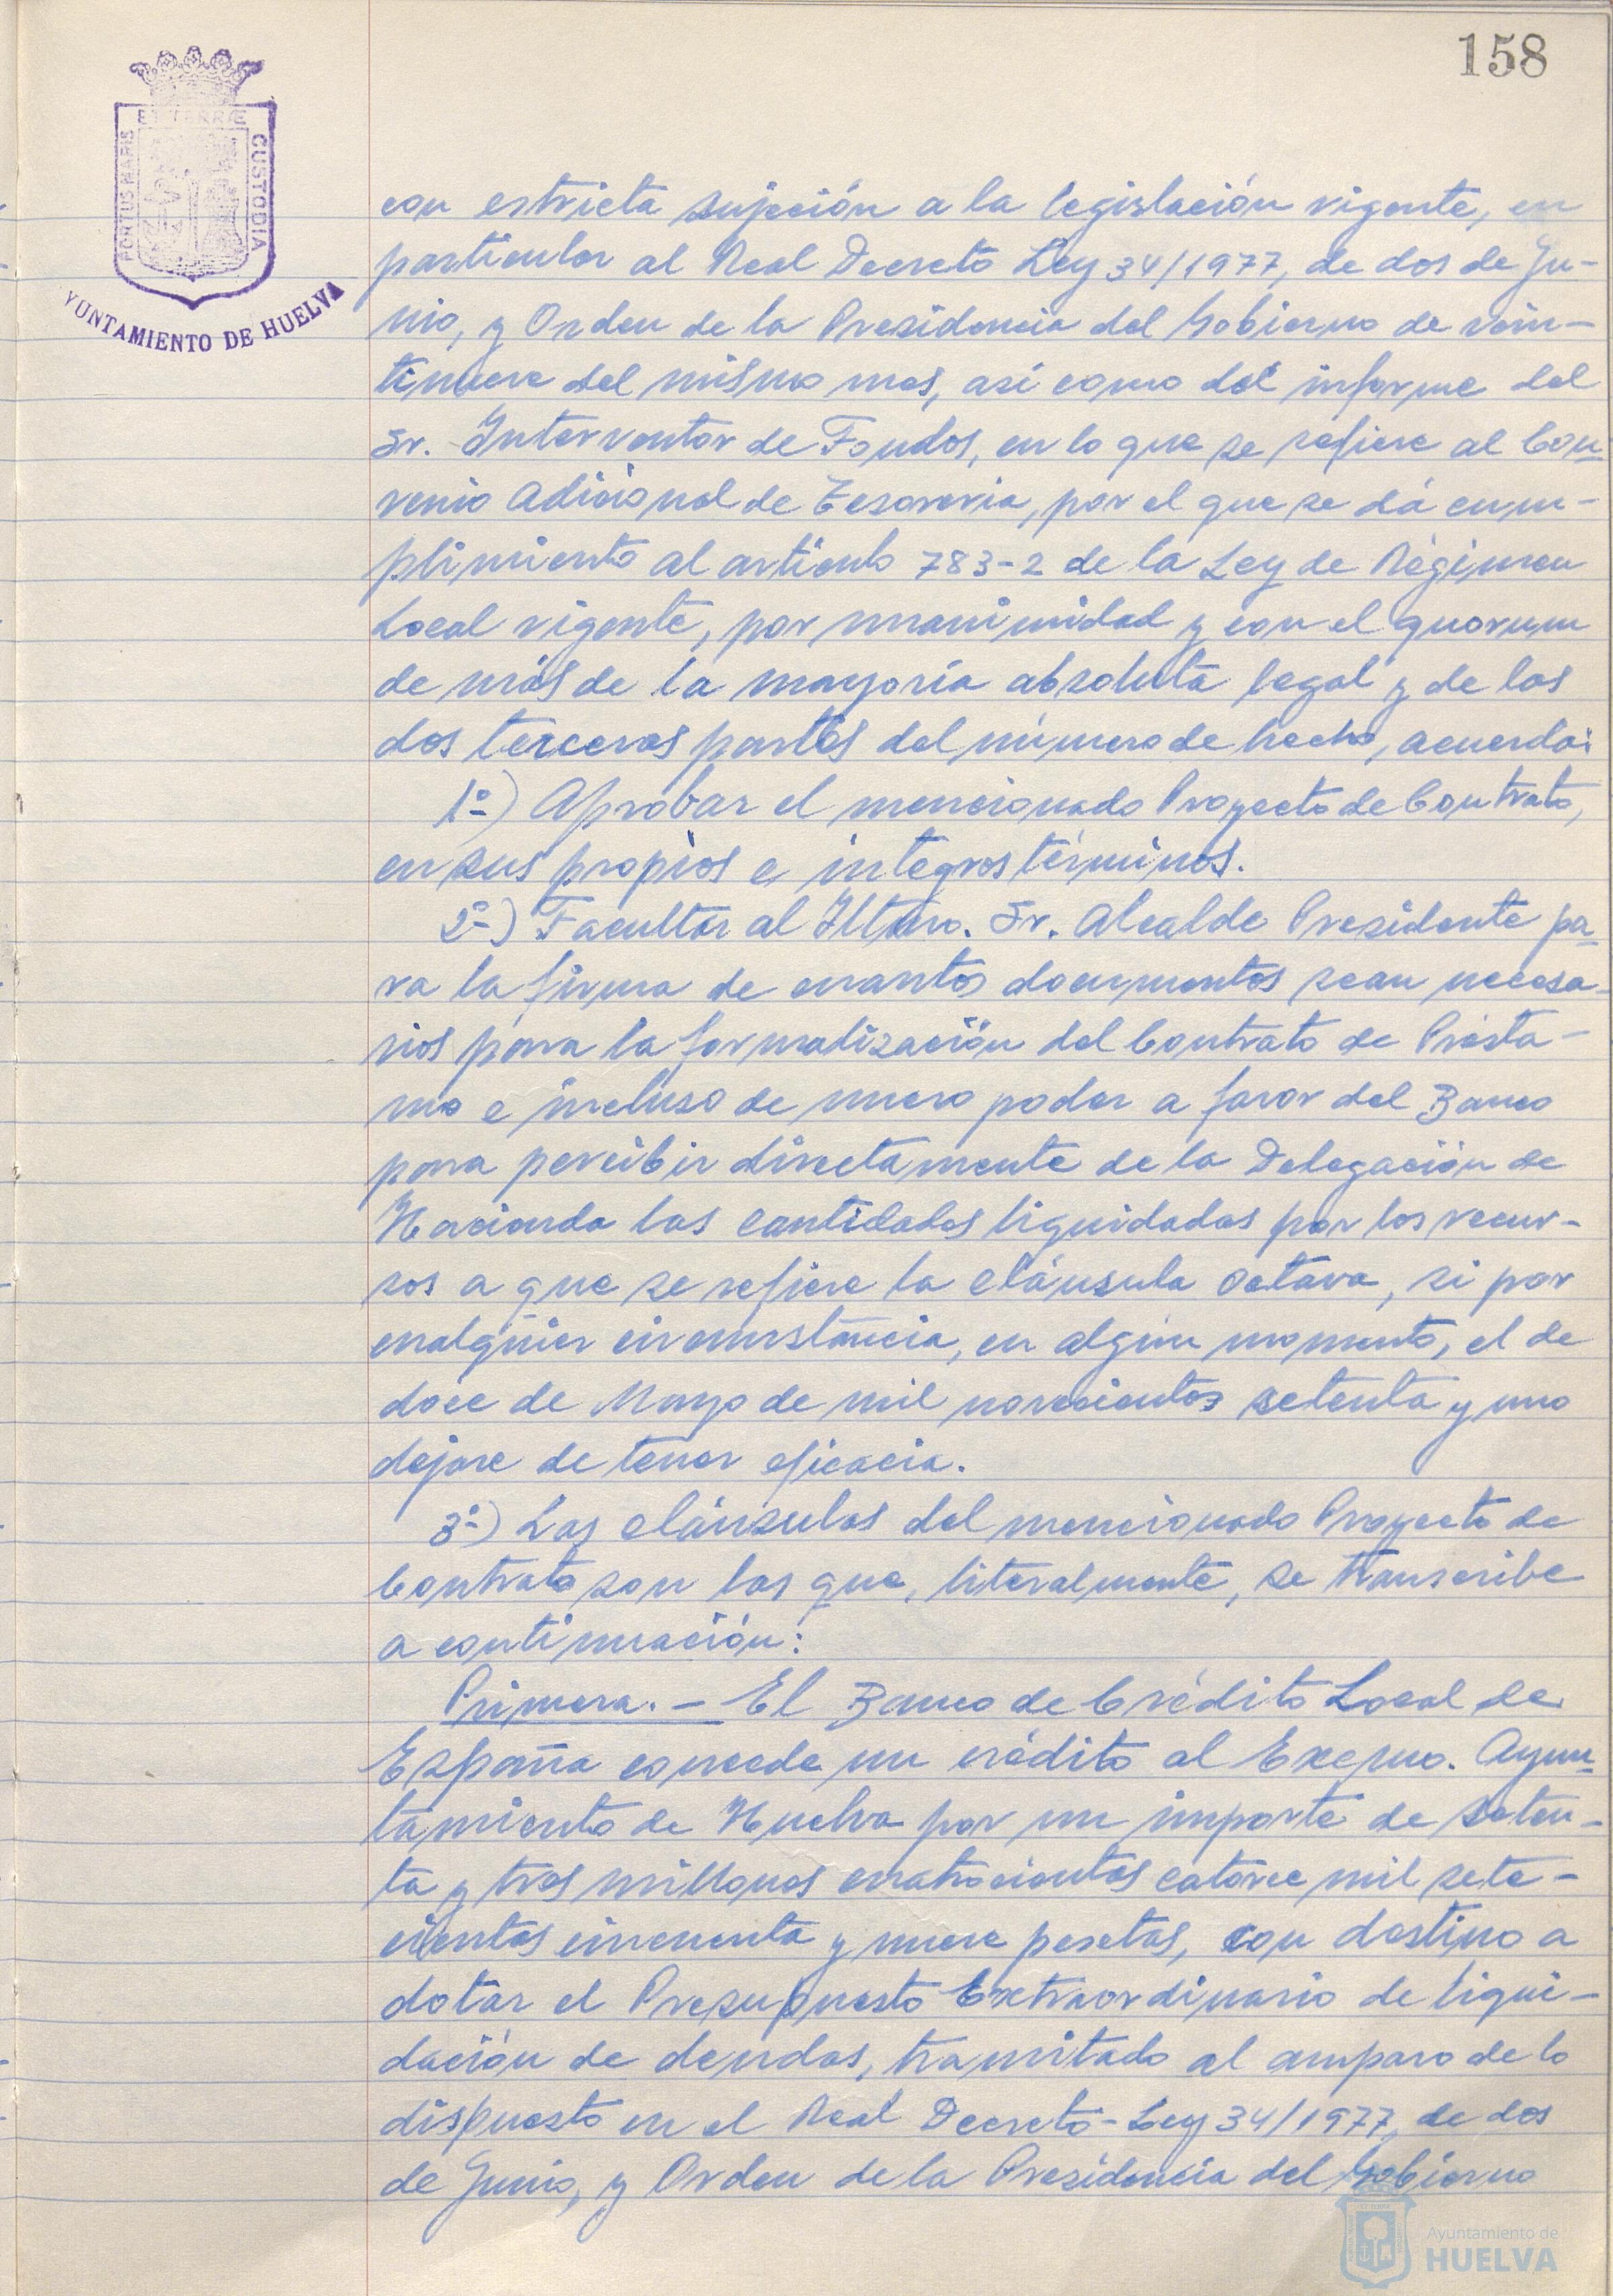 158
ET TERRÆ
PORTUS MARIS
CUSTODIA
YUNTAMIENTO DE HUELVA
con estricta sujeción a la legislación vigente, en
particular al Real Decreto Ley 34/1977, de dos de Ju-
nio, y Orden de la Presidencia del Gobierno de vein-
tinueve del mismo mes, así como del informe del
Sr. Interventor de Fondos, en lo que se refiere al Con-
venio Adicional de Tesoreria, por el que se dá cum-
plimiento al artículo 783-2 de la Ley de Régimen
Local vigente, por unanimidad y con el quorum
de más de la mayoría absoluta legal y de las
dos terceras partes del número de hecho, acuerda:
1º) Aprobar el mencionado Proyecto de Contrato,
en sus propios e integros términos.
2º) Facultar al Iltmo. Sr. Alcalde Presidente pa-
ra la firma de cuantos documentos sean necesa-
rios para la formalización del Contrato de Présta-
mo e incluso de nuevo poder a favor del Banco
para percibir directamente de la Delegación de
Hacienda las cantidades liquidadas por los recur-
sos a que se refiere la cláusula octava, si por
cualquier circunstancia, en algún momento, el de
doce de Mayo de mil novecientos setenta y uno
dejare de tener eficacia.
3º) Las cláusulas del mencionado Proyecto de
Contrato son las que, literalmente, se transcribe
a continuación:
Primera. - El Banco de Crédito Local de
España concede un crédito al Excmo. Ayun-
tamiento de Huelva por un importe de seten-
ta y tres millones cuatrocientas catorce mil sete-
cientas cincuenta y nueve pesetas, con destino a
dotar el Presupuesto Extraordinario de liqui-
dación de deudas, tramitado al amparo de lo
dispuesto en el Real Decreto-Ley 34/1977, de dos
de Junio, y Orden de la Presidencia del Gobierno
Ayuntamiento de
HUELVA